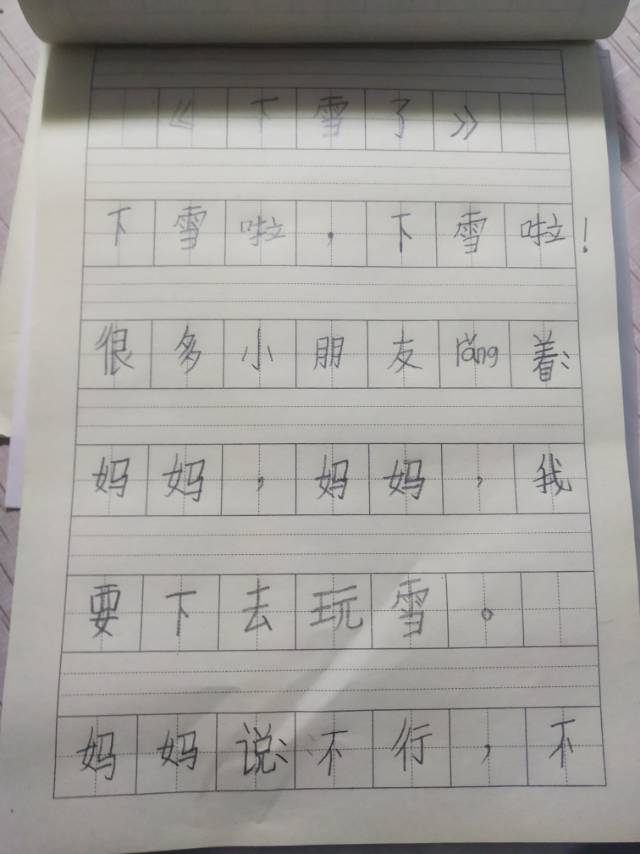 《下雪了》
下雪啦，下雪啦！
很多小朋友rǎng着：
妈妈，妈妈，我
要下去玩雪。
妈妈说：不行，不